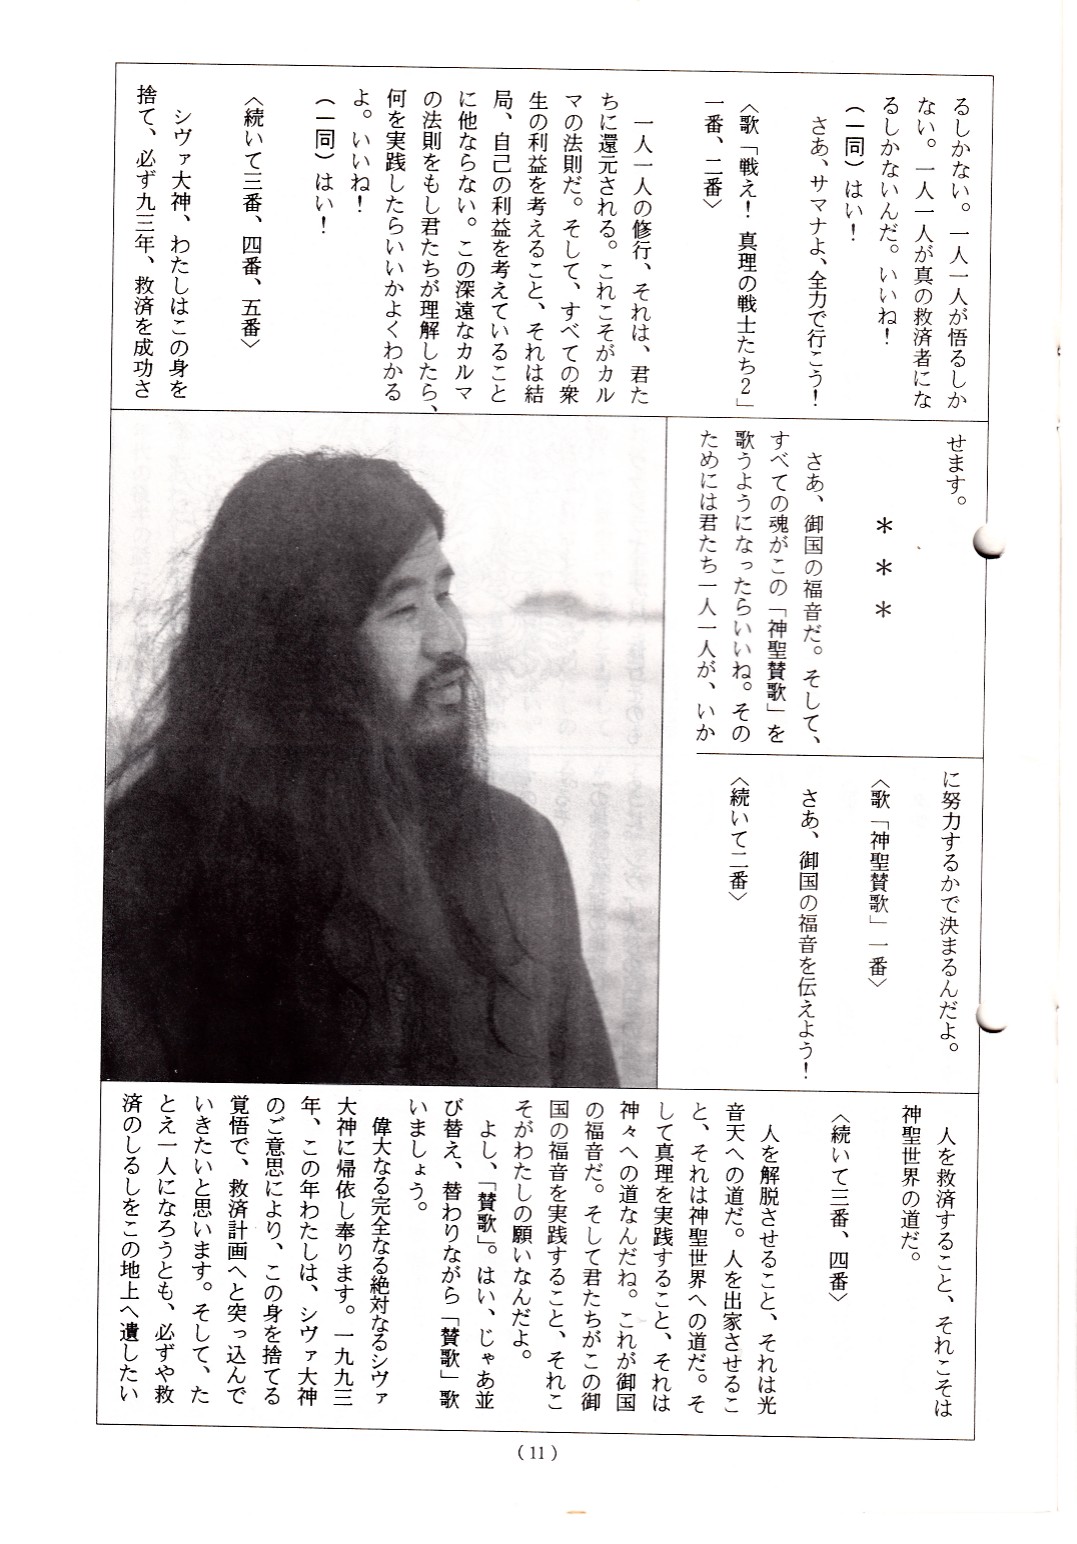 るしかない。一人一人が悟るしか
ない。一人一人が真の救済者にな
るしかないんだ。いいね！
（一同）はい！
さあ、サマナよ、全力で行こう！
〈歌「戦え！ 真理の戦士たち2」
一番、二番〉
一人一人の修行、それは、君た
ちに還元される。これこそがカル
マの法則だ。そして、すべての衆
生の利益を考えること、それは結
局、自己の利益を考えていること
に他ならない。この深遠なカルマ
の法則をもし君たちが理解したら、
何を実践したらいいかよくわかる
よ。いいね！
（一同）はい！
〈続いて三番、四番、五番〉
シヴァ大神、わたしはこの身を
捨て、必ず九三年、救済を成功さ
せます。
＊ ＊ ＊
さあ、御国の福音だ。そして、
すべての魂がこの「神聖賛歌」を
歌うようになったらいいね。その
ためには君たち一人一人が、いか
に努力するかで決まるんだよ。
〈歌「神聖賛歌」一番〉
さあ、御国の福音を伝えよう！
〈続いて二番〉
人を救済すること、それこそは
神聖世界の道だ。
〈続いて三番、四番〉
人を解脱させること、それは光
音天への道だ。人を出家させるこ
と、それは神聖世界への道だ。そ
して真理を実践すること、それは
神々への道なんだね。これが御国
の福音だ。そして君たちがこの御
国の福音を実践すること、それこ
そがわたしの願いなんだよ。
よし、「賛歌」。はい、じゃあ並
び替え、替わりながら「賛歌」歌
いましょう。
偉大なる完全なる絶対なるシヴァ
大神に帰依し奉ります。一九九三
年、この年わたしは、シヴァ大神
のご意思により、この身を捨てる
覚悟で、救済計画へと突っ込んで
いきたいと思います。そして、た
とえ一人になろうとも、必ずや救
済のしるしをこの地上へ遺したい
（11）